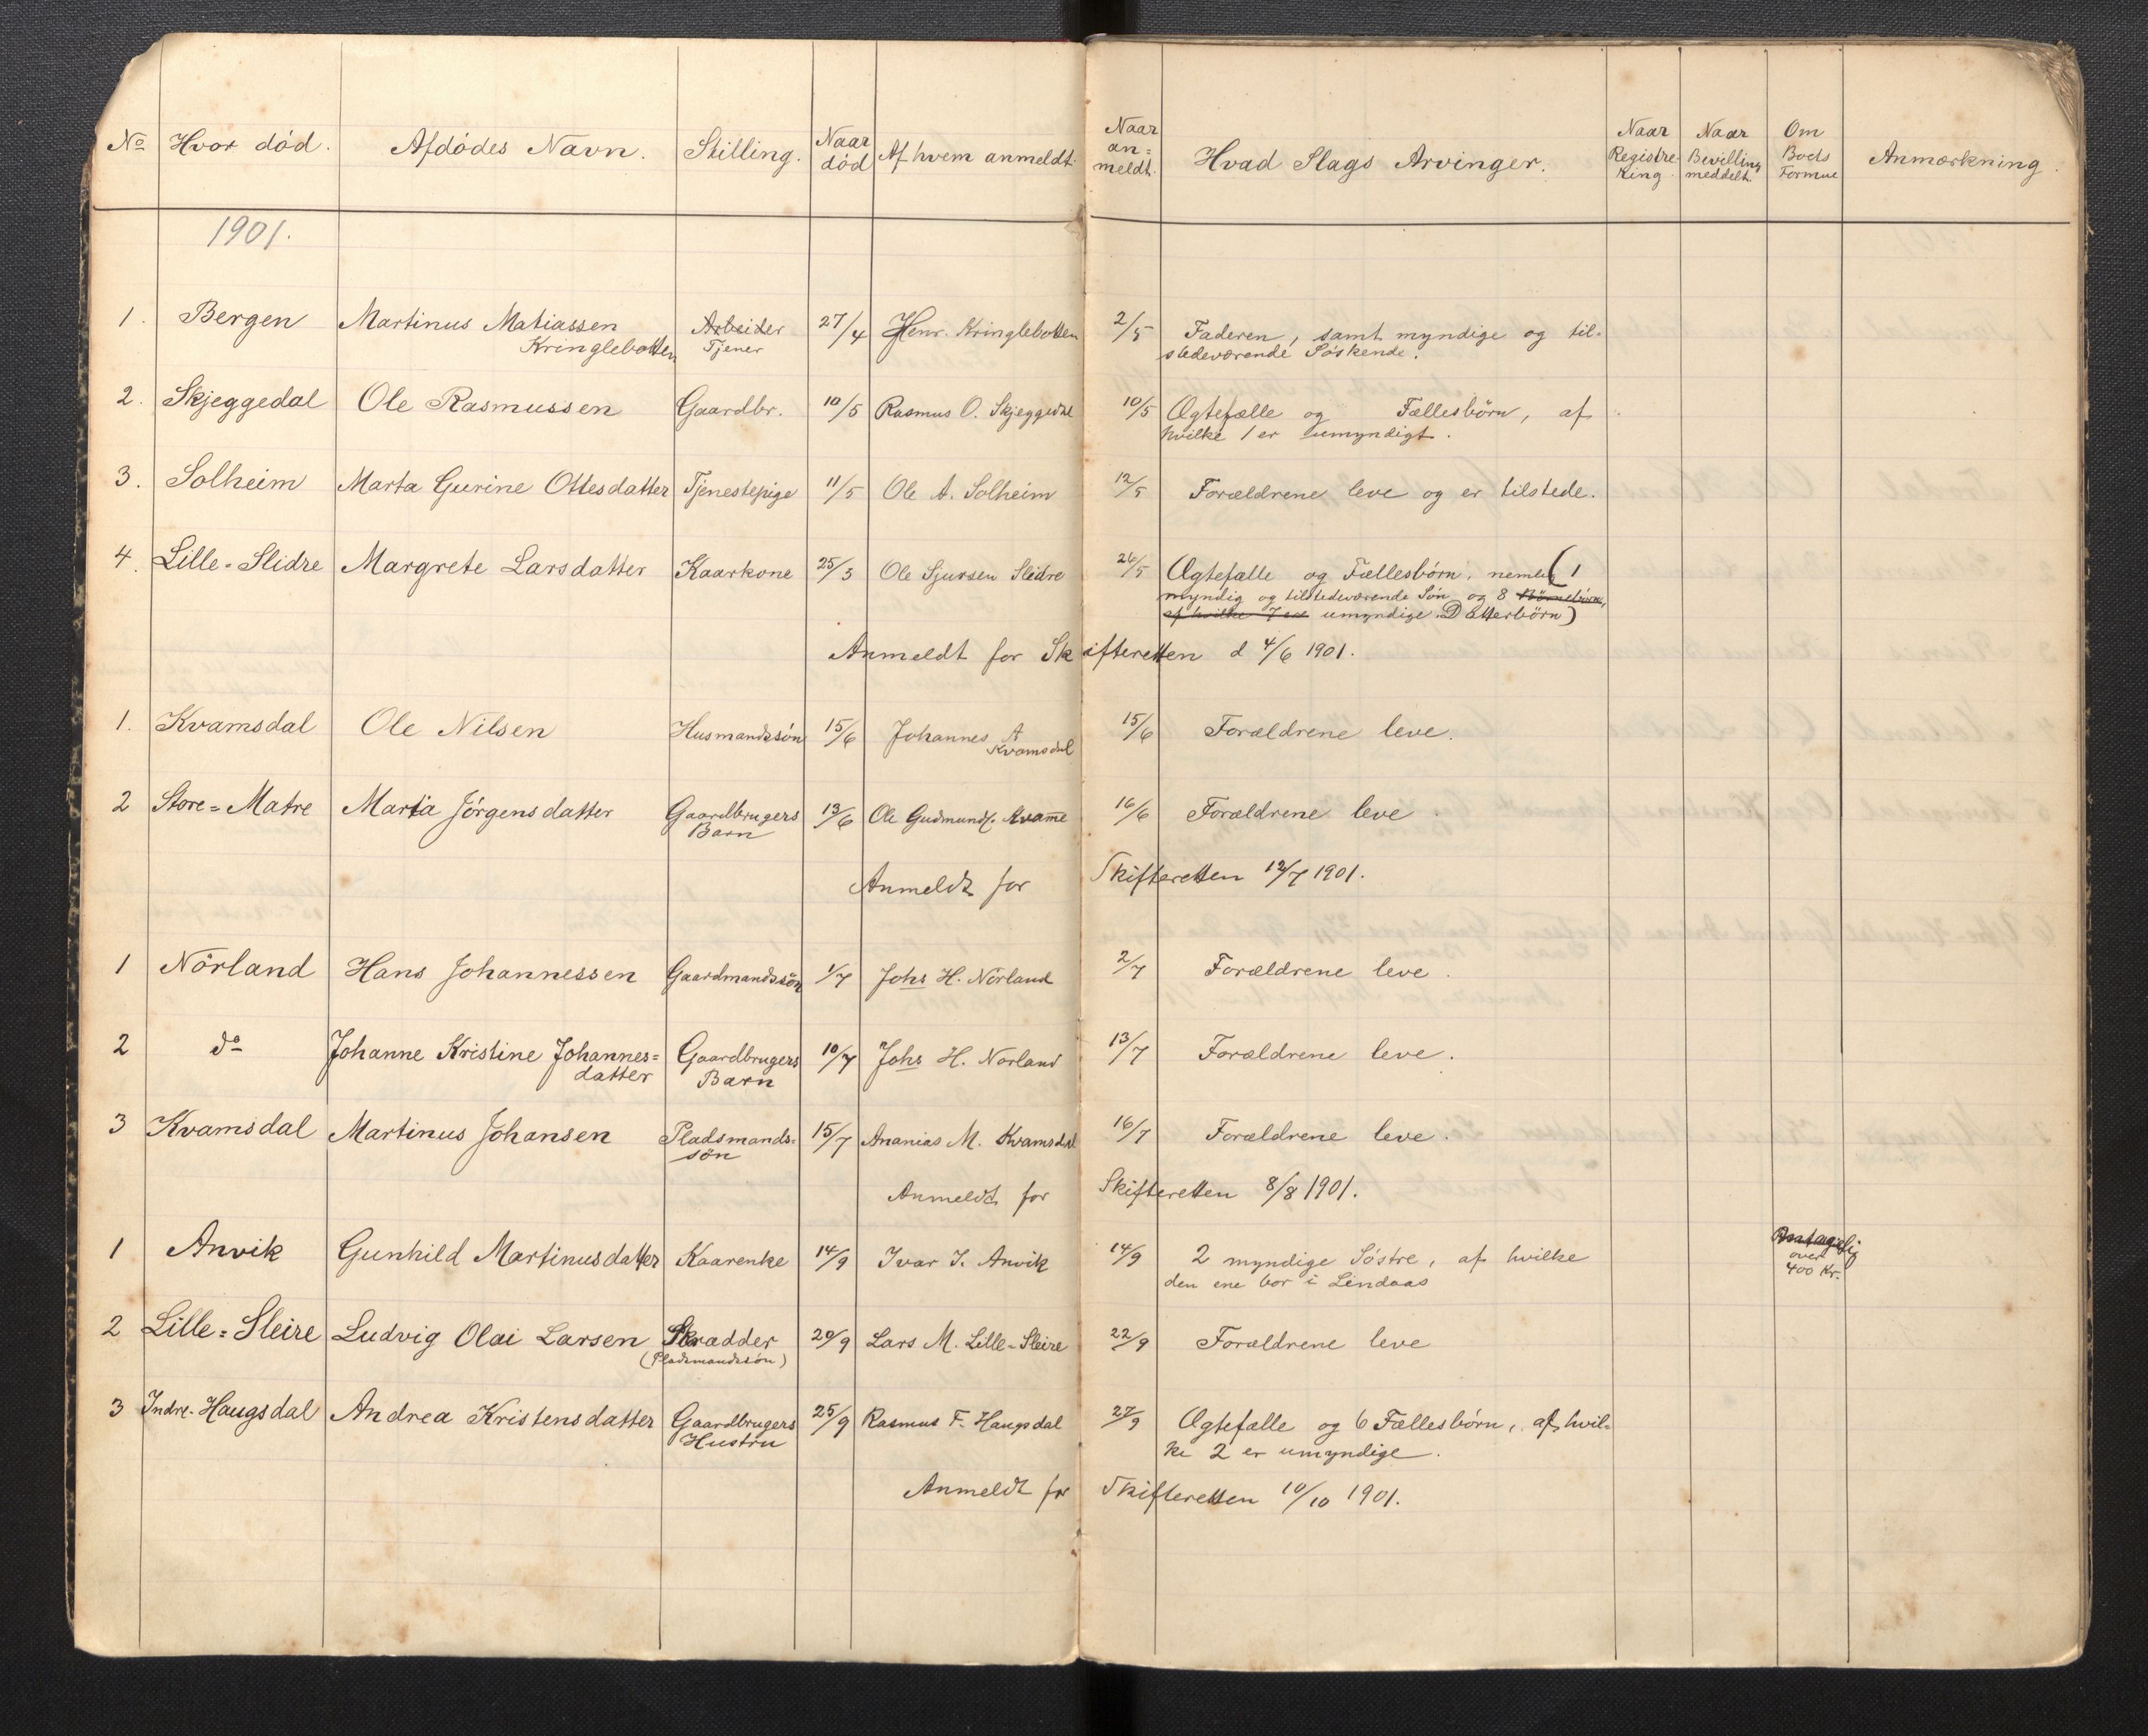 No Hvor död. Afdödes Navn. Stilling. Naar död Af hvem anmeldt. Naar an= meldt. Hvad Slags Arvinger. Naar Registre- ring. Naar Bevilling meddelt. Om Boets Formue Anmærkning.
1901.
1. Bergen Martinus Matiassen Arbeider 27/4 Henr. Kringlebotten 2/5 Faderen, samt myndige og til-
Kringlebotten Tjener stedeværende Söskende.
2. Skjeggedal Ole Rasmussen Gaardbr. 10/5 Rasmus O. Skjeggedal 10/5 Ægtefælle og Fællesbörn, af
hvilke 1 er umyndigt.
3. Solheim Marta Gurine Ottesdatter Tjenestepige 11/5 Ole A. Solheim 12/5 Forældrene leve og er tilstede.
4. Lille=Slidre Margrete Larsdatter Kaarkone 25/5 Ole Sjursen Slidre 26/5 Ægtefælle og Fællesbörn, nemlig (1
myndig og tilstedeværende Sön og 8 Börnebörn,
af hvilke 7 er umyndige Datterbörn)
Anmeldt for Skifteretten d 4/6 1901.
1. Kvamsdal Ole Nilsen Husmandssön 15/6 Johannes A 15/6 Forældrene leve.
Kvamsdal
2 Store=Matre Marta Jörgensdatter Gaardbrugers 13/6 Ole Gudmunds. Kvamme 16/6 Forældrene leve
Barn
Anmeldt for Skifteretten 12/7 1901.
1 Nörland Hans Johannessen Gaardmandssön 1/7 Johs H. Nörland 2/7 Forældrene leve.
2 do Johanne Kristine Johannes= Gaardbrugers 10/7 Johs H. Nörland 13/7 Forældrene leve.
datter Barn
3 Kvamsdal Martinus Johansen Pladsmands= 15/7 Ananias M. Kvamsdal 16/7 Forældrene leve.
sön
Anmeldt for Skifteretten 8/8 1901.
1 Anvik Gunhild Martinusdatter Kaarenke 14/9 Ivar I. Anvik 14/9 2 myndige Söstre, af hvilke Antagelig
den ene bor i Lindaas over
400 Kr.
2 Lille=Sleire Ludvig Olai Larsen Skrædder 20/9 Lars M. Lille-Sleire 22/9 Forældrene leve
(Pladsmandssön)
3 Indre-Haugsdal Andrea Kristensdatter Gaardbrugers 25/9 Rasmus F. Haugsdal 27/9 Ægtefælle og 6 Fællesbörn, af hvil-
Hustru ke 2 er umyndige.
Anmeldt for Skifteretten 10/10 1901.